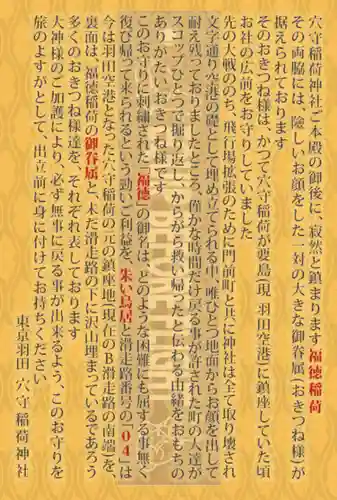 穴守稲荷神社ご本殿の御後に、寂然と鎮まります福徳稲荷
その両脇には、険しいお顔をした一対の大きな御眷属(おきつね様)が
据えられております
そのおきつね様は、かつて穴守稲荷が要島(現羽田空港)に鎮座していた頃
お社の広前をお守りしていました
先の大戦ののち、飛行場拡張のために門前町と共に神社は全て取り壊され
文字通り空港の礎として埋め立てられる中、唯ひとつ地面からお顔を出して
耐え残っておりましたところ、僅かな時間だけ戻る事が許された町の人達が
スコップひとつで掘り返し、からがら救い帰ったと伝わる由緒をおもちの
ありがたいおきつね様です
このお守りに刺繍された「福徳」の御名は、どのような困難にも屈する事無く
復び帰って来られるという勁いご利益を、朱い鳥居と滑走路番号の「04」は
今は羽田空港となった穴守稲荷の元の鎮座地(現在のB滑走路の南端)を
裏面は、福徳稲荷の御眷属と、未だ滑走路の下に沢山埋まっているであろう
多くのおきつね様達を、それぞれ表しております
大神様のご加護により、必ず無事に戻る事が出来るよう、このお守りを
旅のよすがとして、出立前に身に付けてお持ちください
東京羽田 穴守稲荷神社